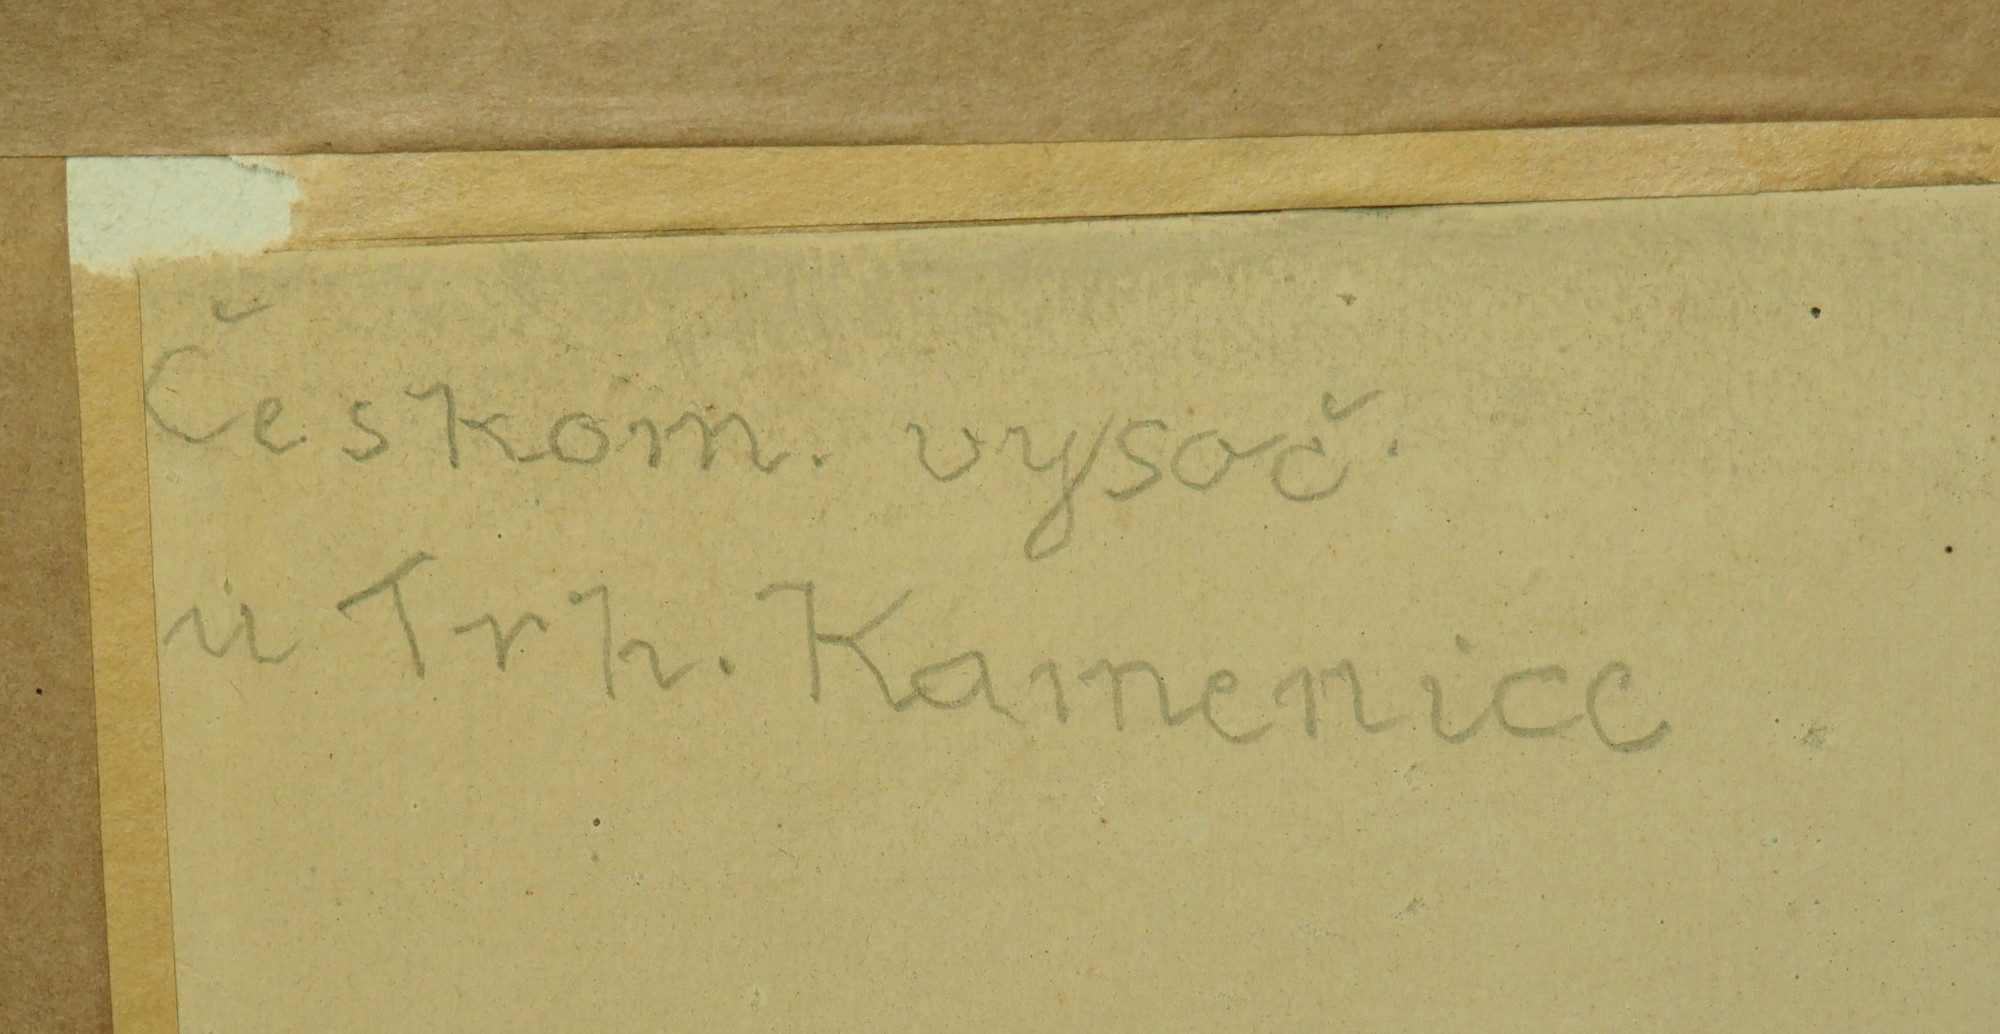 Českom. vysoč.
u Trh. Kamenice